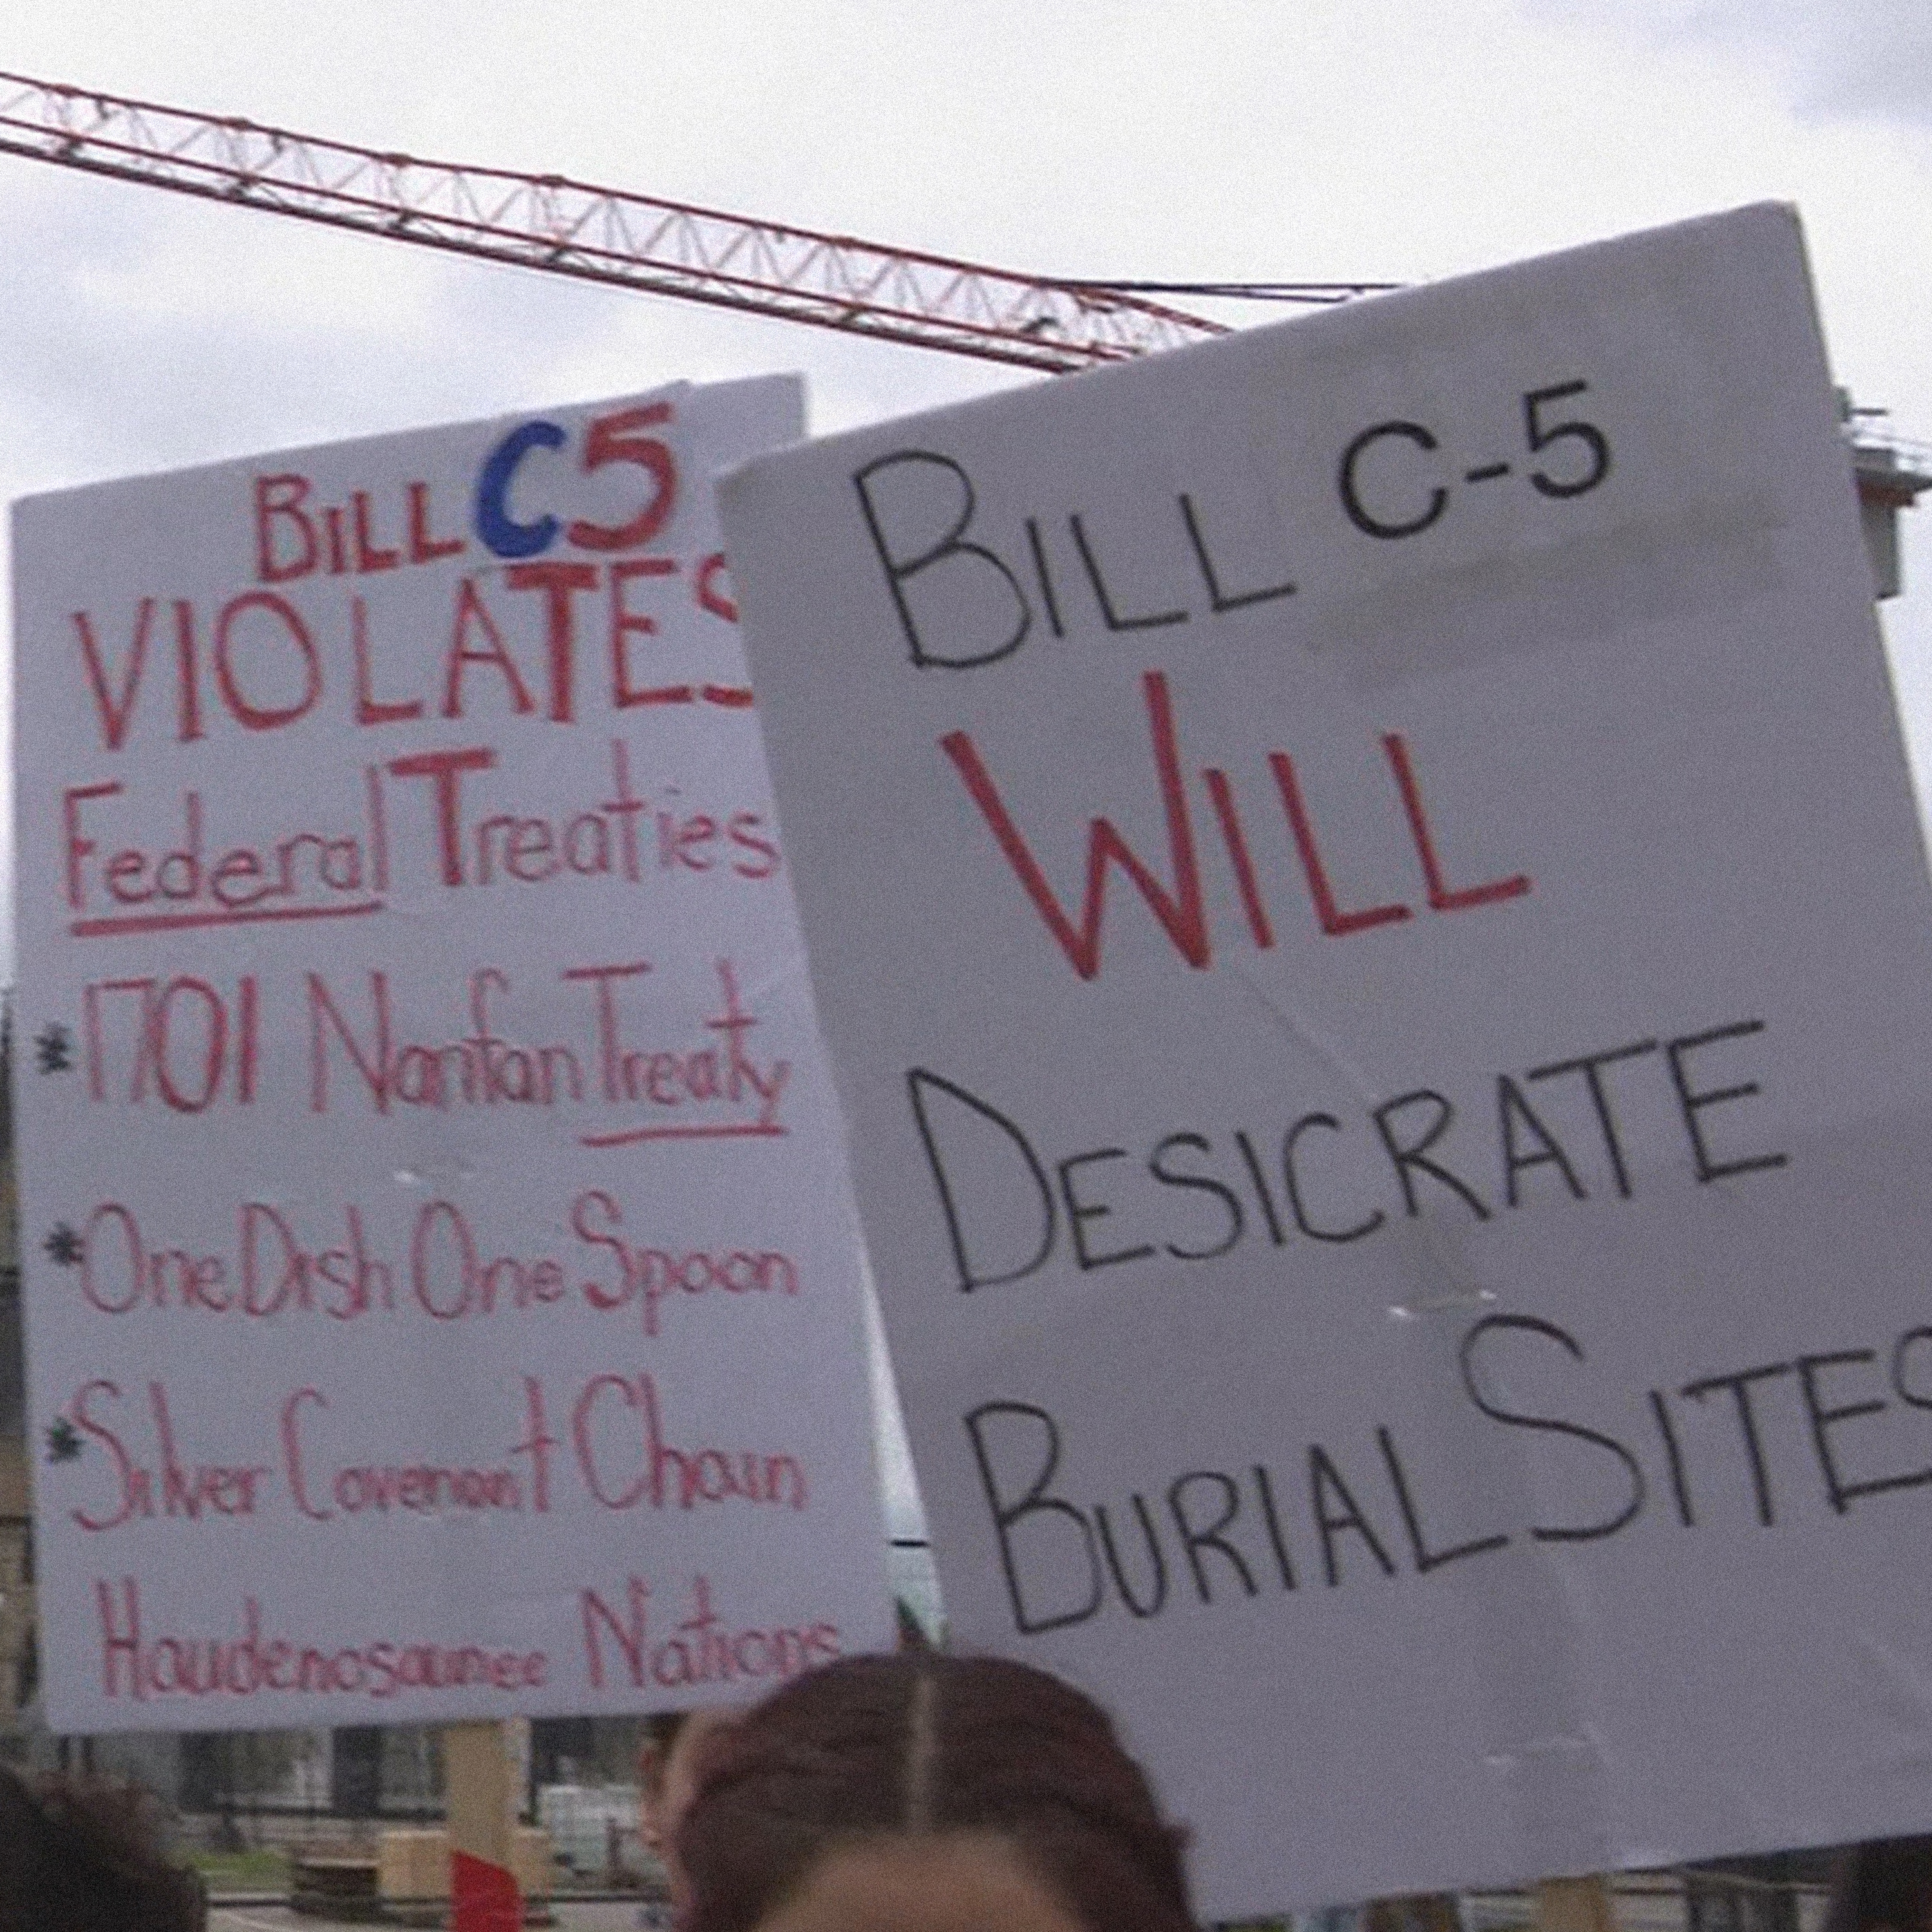 BILL C5
VIOLATES
Federal Treaties
*1701 Nanfan Treaty
*One Dish One Spoon
*Silver Covenant Chain
Haudenosaunee Nations
BILL C-5
WILL
DESICRATE
BURIAL SITES